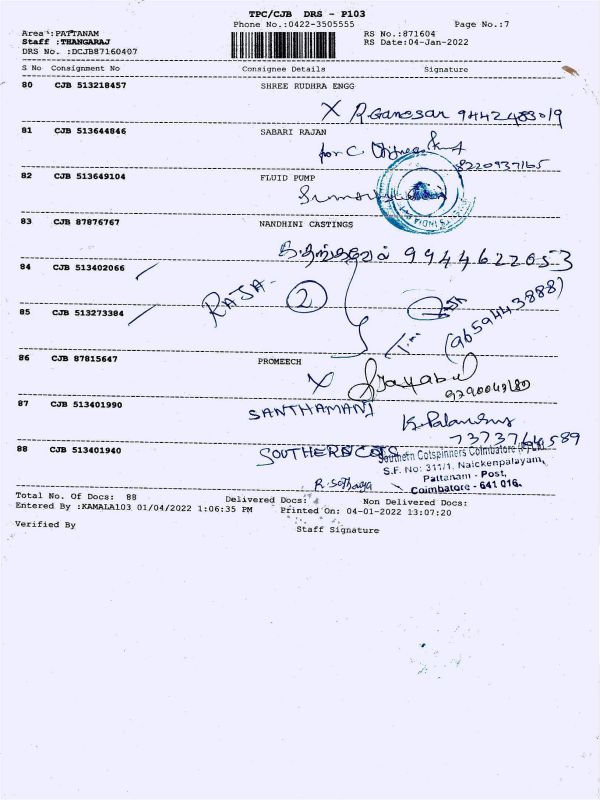 TPC/CJB DRS - P103
Phone No.:0422-3505555 Page No.:7
Area :PATTANAM RS No.:871604
Staff :THANGARAJ RS Date:04-Jan-2022
DRS No. :DCJB87160407
S No Consignment No Consignee Details Signature
80 CJB 513218457 SHREE RUDHRA ENGG
X R.Ganesan
81 CJB 513644846 SABARI RAJAN
for C.
8220937165
82 CJB 513649104 FLUID PUMP
83 CJB 87876767 NANDHINI CASTINGS
9944622053
84 CJB 513402066
RAJA- 2
85 CJB 513273384
(9659443888)
86 CJB 87815647 PROMEECH
X
87 CJB 513401990 SANTHAMANI
88 CJB 513401940 SOUTHERN COTS
Southern Cotspinners Coimbatore (P) Ltd
S.F. No: 311/1, Naickenpalayam,
Pattanam - Post,
Coimbatore - 641 016.
Total No. Of Docs: 88 Delivered Docs: Non Delivered Docs:
Entered By :KAMALA103 01/04/2022 1:06:35 PM Printed On: 04-01-2022 13:07:20
Verified By Staff Signature